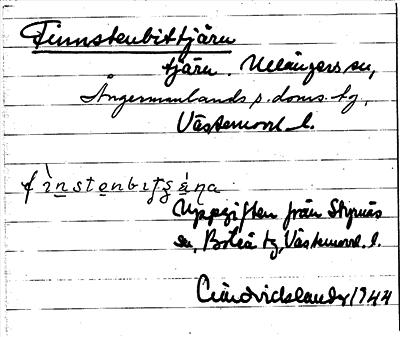 Finnstenbittjärn
tjärn. Ullångers sn,
Ångermanlands s. doms. tg,
Västernorrl. l.
fìnstɘnbitʂɛ́ṇa
Uppgiften från Styrnäs
sn, Boteå tg, Västernorrl. l.
Lindvidslander 1944